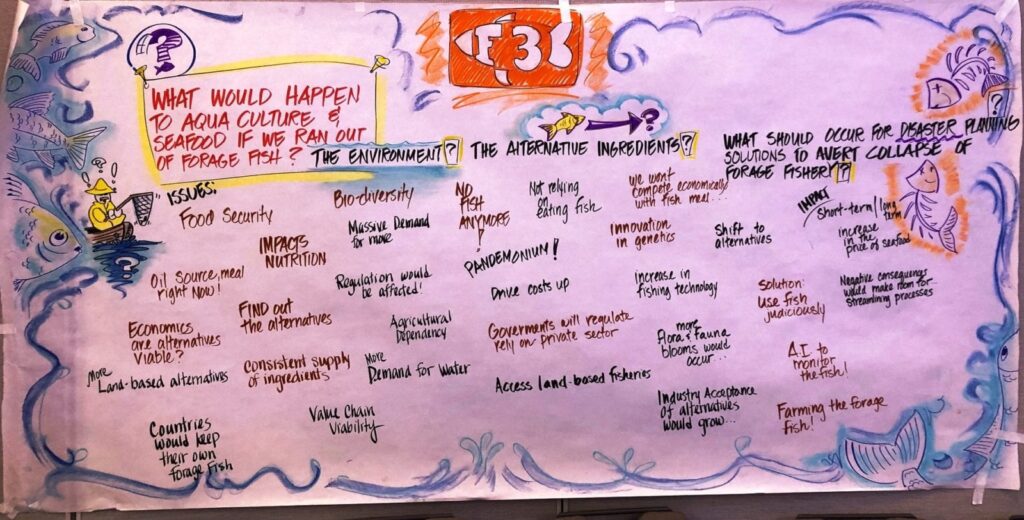 F3
WHAT WOULD HAPPEN
TO AQUA CULTURE &
SEAFOOD IF WE RAN OUT
OF FORAGE FISH?
THE ENVIRONMENT?
THE ALTERNATIVE INGREDIENTS?
WHAT SHOULD OCCUR FOR DISASTER PLANNING
SOLUTIONS TO AVERT COLLAPSE OF
FORAGE FISHERY?
ISSUES:
Food Security
IMPACTS
NUTRITION
Oil Source, meal
right Now!
FIND out
the alternatives
Economics
are alternatives
Viable?
More
Land-based alternatives
Consistent supply
of ingredients
Countries
would keep
their own
forage fish
Value Chain
Viability
Bio-diversity
Massive Demand
for more
Regulation would
be affected!
Agricultural
Dependency
More
Demand for Water
NO
FISH
ANYMORE!
PANDEMONIUM!
Not relying
on
eating fish
Drive costs up
Goverments will regulate
rely on private sector
Access land-based fisheries
We won't
compete economically
with fish meal...
Innovation
in genetics
Increase in
fishing technology
more
Flora & Fauna
blooms would
occur...
Industry Acceptance
of alternatives
would grow...
Shift to
alternatives
Solution:
Use fish
judiciously
A.I. to
monitor
the fish!
Farming the forage
fish!
IMPACT
Short-term/long
term
increase
in the
price of seafood
Negative consequences
would make room for
streamlining processes